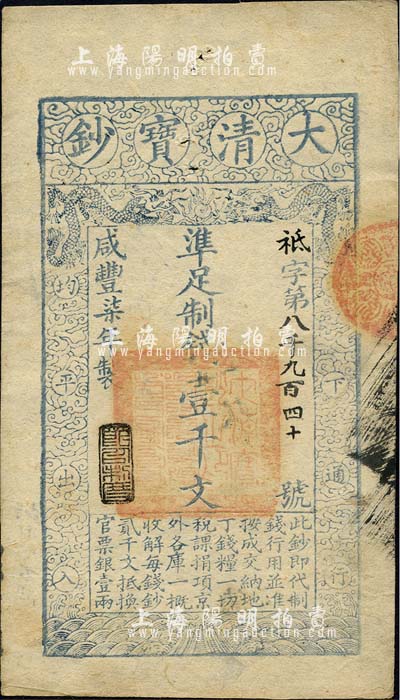 上海陽明拍賣
www.yangmingauction.com
大清寶鈔
祗字第八千九百四十號
準足制錢壹千文
咸豐柒年製
天下通行
均平出入
此鈔即代制
錢行用並准
按成交納地
丁錢糧一切
稅課捐項京
外各庫一概
收解每錢鈔
貳千文抵換
官票銀壹兩
上海陽明拍賣
www.yangmingauction.com
上海陽明拍賣
www.yangmingauction.com